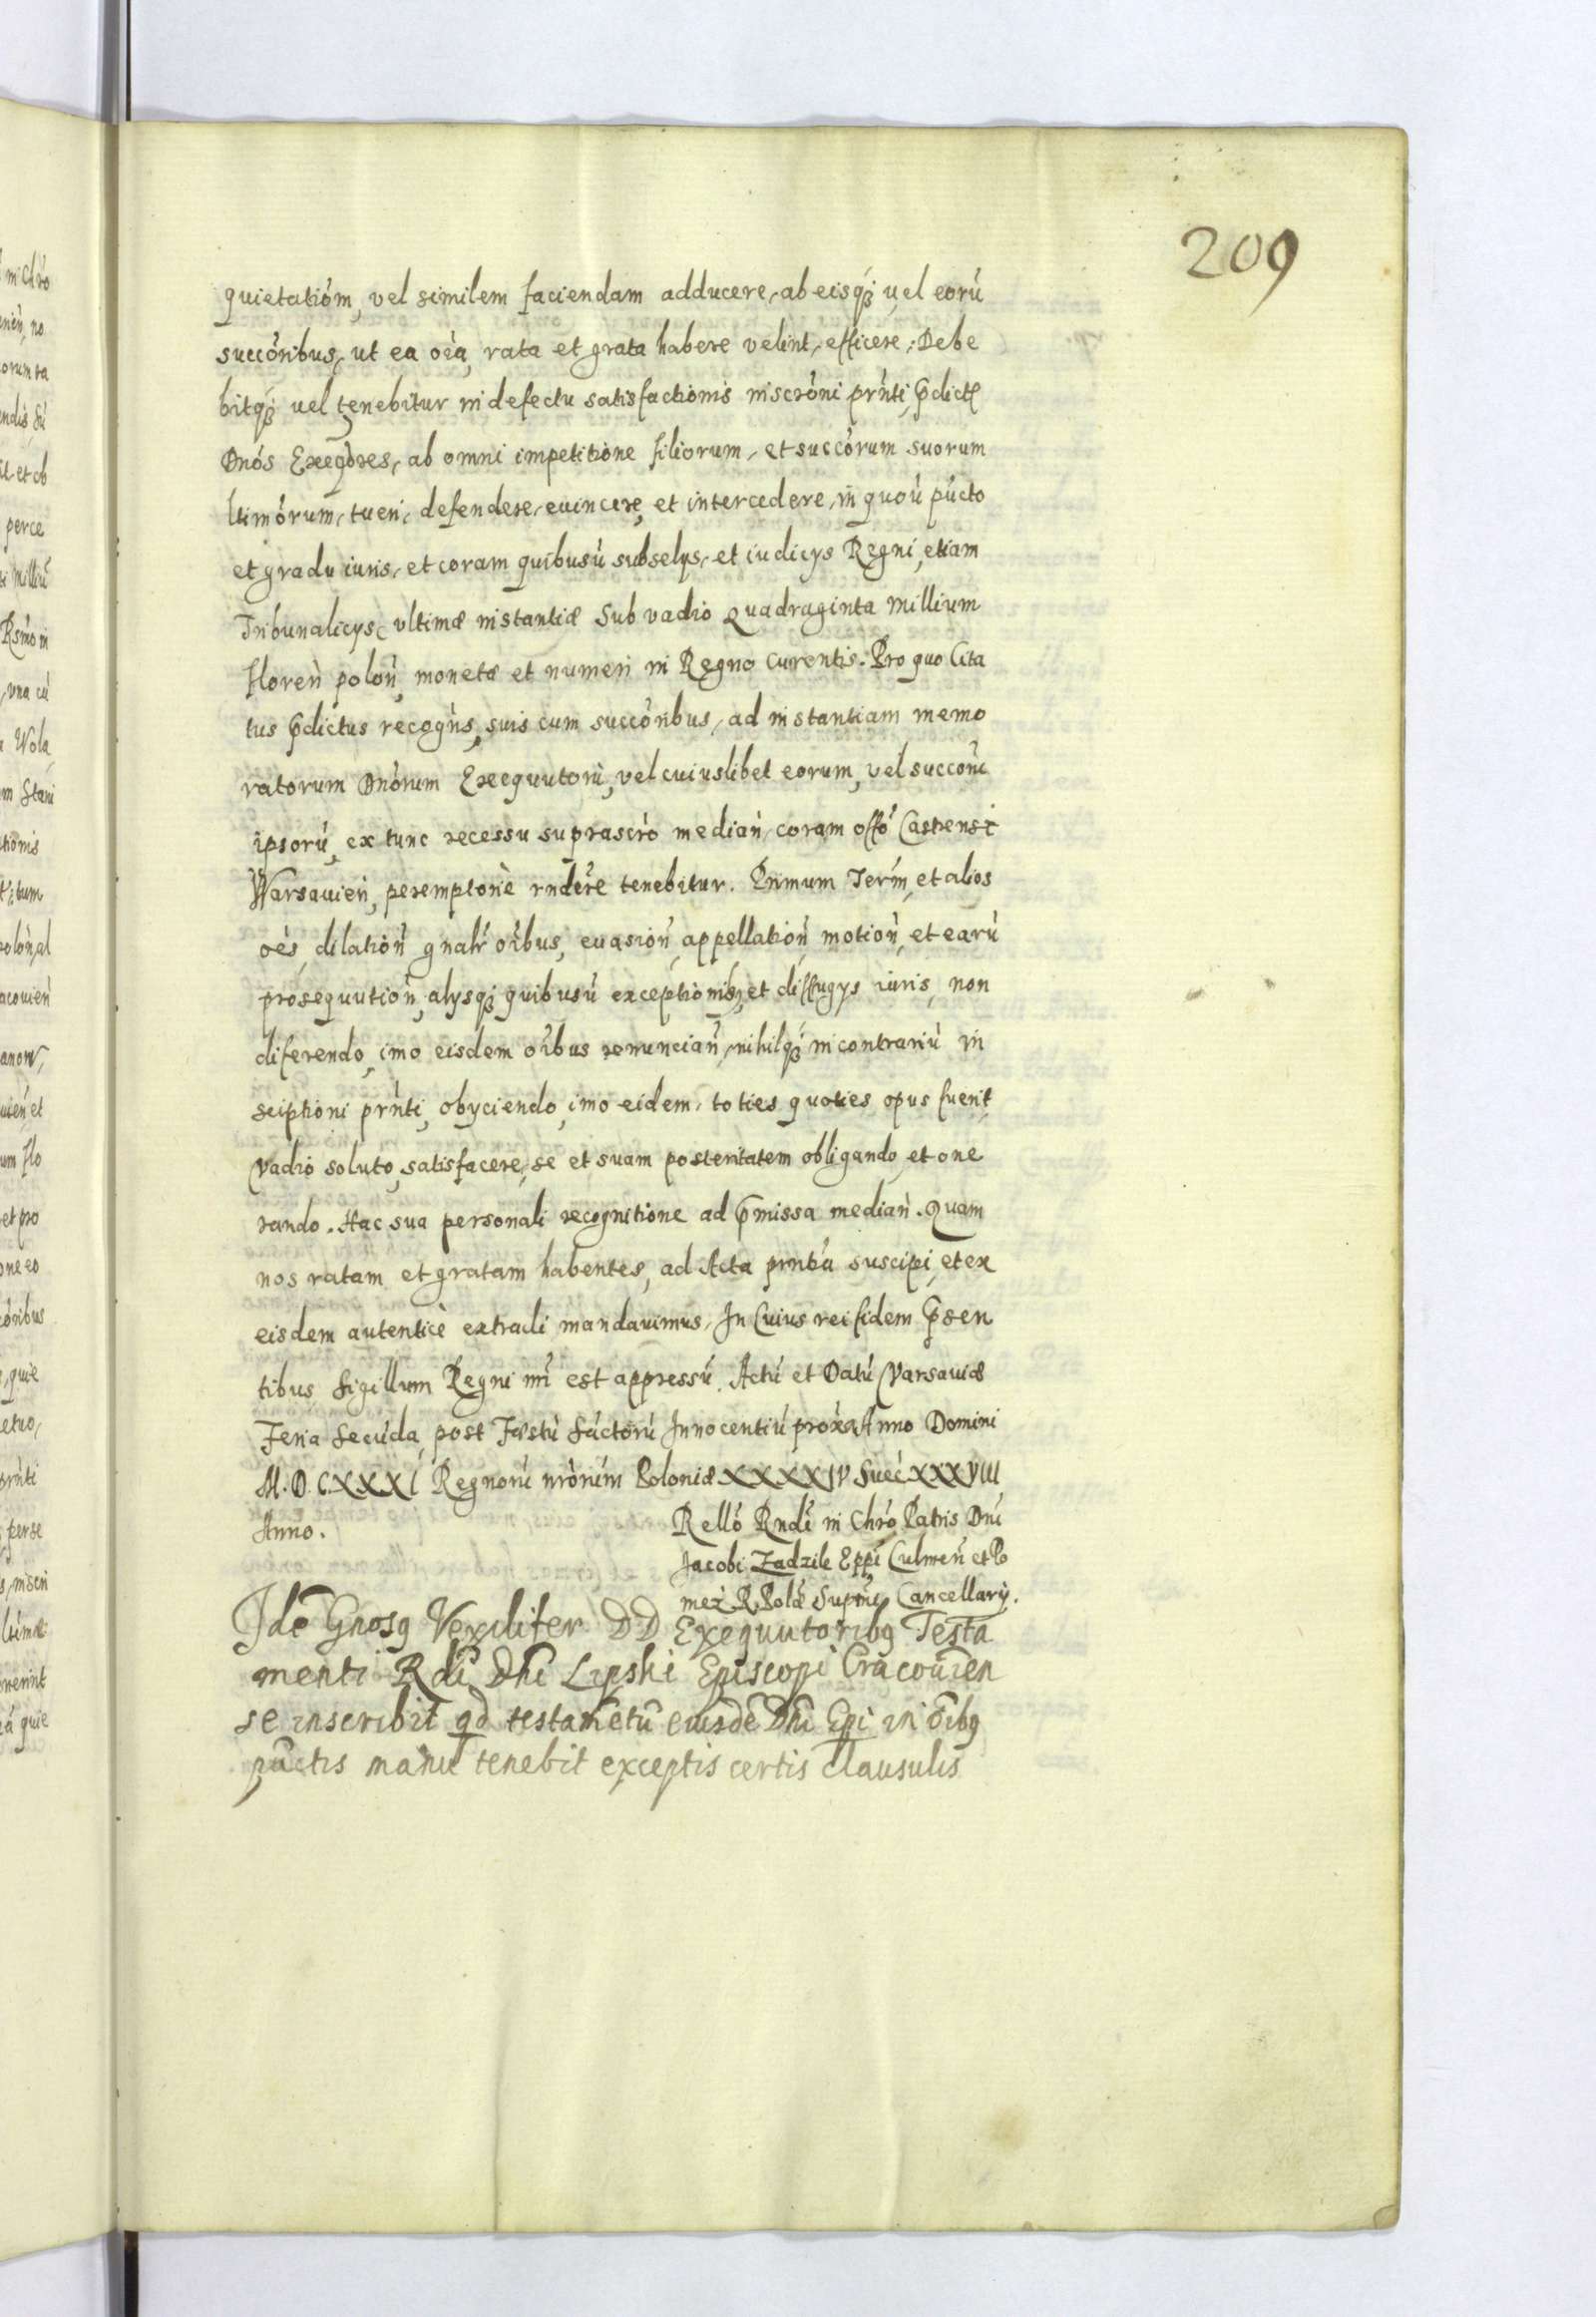 209
quietatióm, vel similem faciendam adducere, ab eisq́ꝫ uel eorú
succóribus, ut ea oía, rata et grata habere velint, efficere: Debe
bitq́ꝫ uel tenebitur in defectu satisfactionis inscróni prńti, p̄dictꝭ
Dnós Exeq̃óres, ab omni impetitione filiorum, et succórum suorum
ltimórum, tueri, defendere, euincere, et intercedere, in quoú púcto
et gradu iuris, et coram quibusú subselys, et iudicys Regni, etiam
Tribunalicys, vltimæ instantiæ Sub vadio Quadraginta Millium
floreń poloń, monetæ et numeri in Regno Curentis. Pro quo Cita
tus p̄dictus recogńs, suis cum succóribus, ad instantiam memo
ratorum Dnórum Exequutorú, vel cuiuslibet eorum, vel succorú
ipsorú, ex tunc recessu suprascrò mediań, coram offó Castrensi
Warsauień, peremptoriè rndére tenebitur. Primum Terḿ, et alios
oés, dilatioń gnalr̃ oíbus, euasioń, appellatioń, motioń, et earú
prosequutioń, alysq́ꝫ quibusú exceptionibꝫ, et diffugys iuris, non
diferendo, imo eisdem oíbus renunciań, nihilq́ꝫ in contrariú in
sciptioni prńti, obyciendo, imo eidem, toties quoties opus fuerit,
vadio soluto, satisfacere, se et suam posteritatem obligando, et one
rando. Hac sua personali recognitione ad p̄missa mediań. Quam
nos ratam et gratam habentes, ad Acta prntia suscipi, et ex
eisdem autenticè extradi mandauimus, In Cuius rei fidem p̄sen
tibus Sigillum Regni nrí est appressú. Actú et Datú Varsauiæ
Feria Secúda, post Fæstú Sáctorú Innocentiú próxa Anno Domini
M.D.C.XXXI Regnorú nrórúm Poloniæ XXXXIV Sueć XXXVIII
Anno.
Relló Rndí in Chró Patris Dní
Jacobi Zadzik Eppí Culmeń et Po
meź R. Polæ Supmi Cancellarÿ.
Idē Gnosꝯ Vexilifer DD Exequutoribꝯ Testa
menti Rdī Dnī Lipski Episcopi Cracouien
se inscribit qd̄ testamētū eiusdē Dnī Epī in oībꝯ
pūctis manu tenebit exceptis certis clausulis